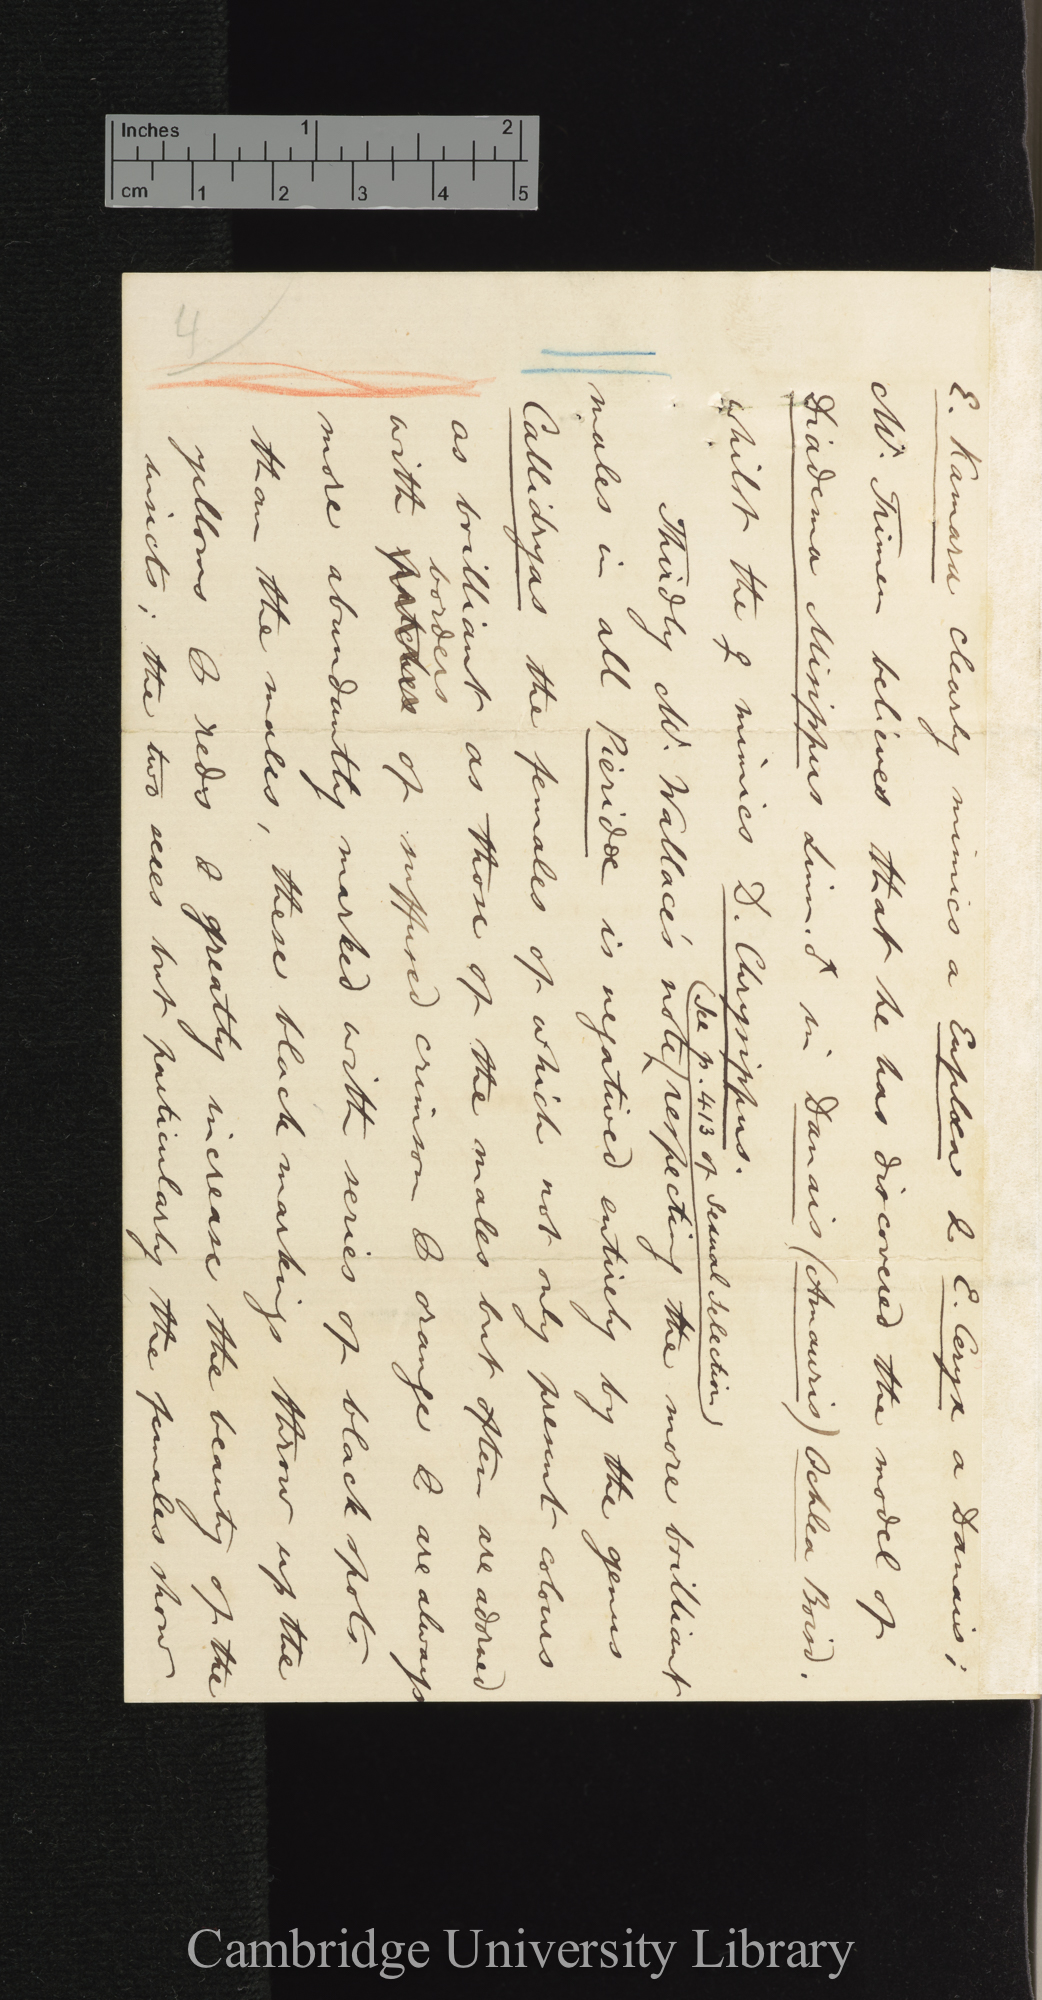 Inches 1 2
cm 1 2 3 4 5
4
E. Kamara clearly mimics a Euploea & E. Ceryx a Danais;
Mr. Trimen believes that he has discovered the model of
Diadema Misippus Linn. ♂ in Danais (Amauris) Ochlea Boisd.
whilst the ♀ mimics D. Chrysippus.
(See p. 413 of Sexual Selection)
Thirdly Mr. Wallace's note, respecting the more brilliant
males in all Pieridæ is negatived entirely by the genus
Callidryas the females of which not only present colours
as brilliant as those of the males but often are adorned
borders
with patches of suffused crimson & orange & are always
more abundantly marked with series of black spots
than the males, these black markings throw up the
yellows & reds & greatly increase the beauty of the
insects; the two sexes but particularly the females show
Cambridge University Library